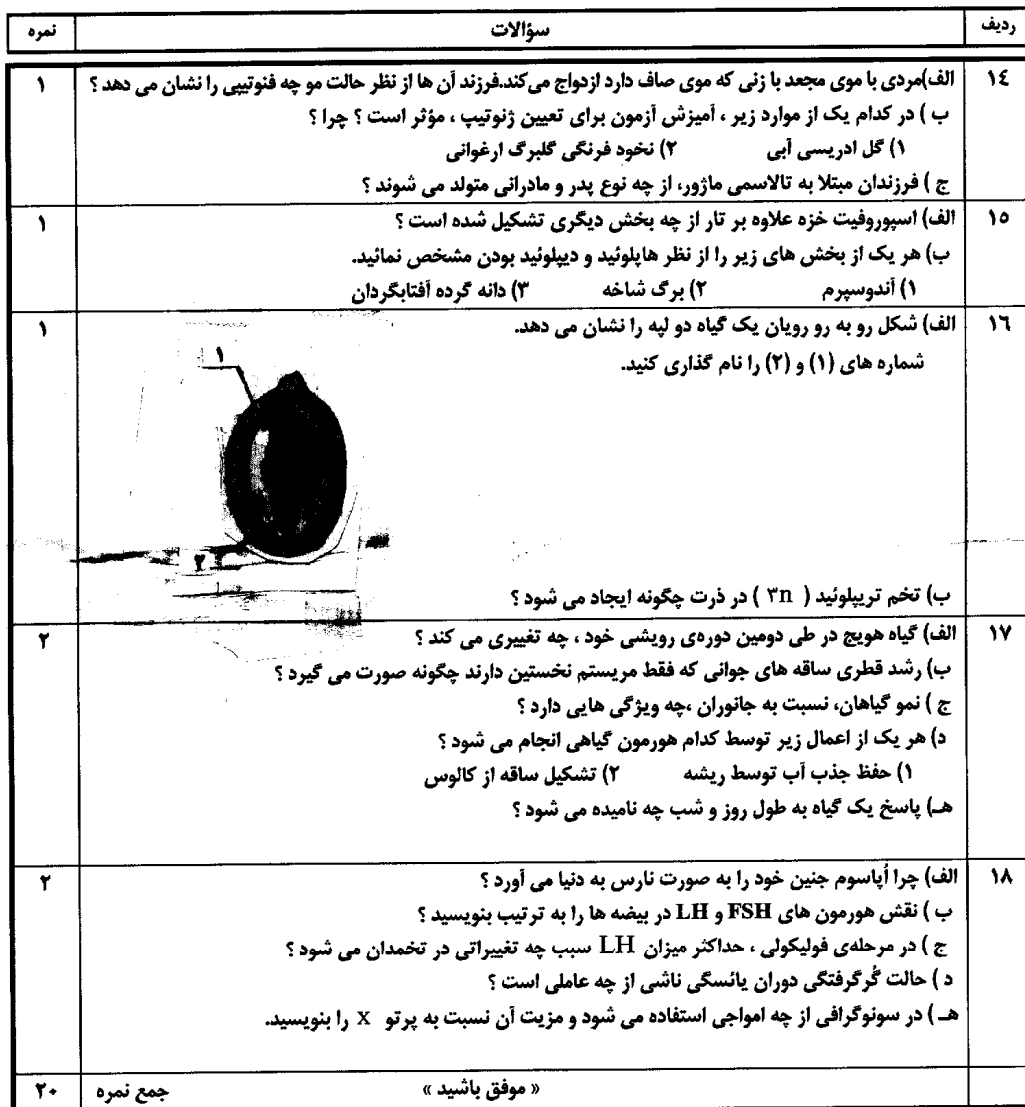 ردیف سؤالات نمره
١٤ الف)مردی با موی مجعد با زنی که موی صاف دارد ازدواج می‌کند.فرزند آن ها از نظر حالت مو چه فنوتیپی را نشان می دهد ؟ ۱
ب ) در کدام یک از موارد زیر ، آمیزش آزمون برای تعیین ژنوتیپ ، مؤثر است ؟ چرا ؟
۱) گل ادریسی آبی ۲) نخود فرنگی گلبرگ ارغوانی
ج ) فرزندان مبتلا به تالاسمی ماژور، از چه نوع پدر و مادرانی متولد می شوند ؟
١٥ الف) اسپوروفیت خزه علاوه بر تار از چه بخش دیگری تشکیل شده است ؟ ۱
ب) هر یک از بخش های زیر را از نظر هاپلوئید و دیپلوئید بودن مشخص نمائید.
۱) آندوسپرم ۲) برگ شاخه ۳) دانه گرده آفتابگردان
١٦ الف) شکل رو به رو رویان یک گیاه دو لپه را نشان می دهد. ۱
شماره های (۱) و (۲) را نام گذاری کنید.
۱
۲
ب) تخم تریپلوئید ( ۳n ) در ذرت چگونه ایجاد می شود ؟
١٧ الف) گیاه هویج در طی دومین دوره‌ی رویشی خود ، چه تغییری می کند ؟ ۲
ب) رشد قطری ساقه های جوانی که فقط مریستم نخستین دارند چگونه صورت می گیرد ؟
ج ) نمو گیاهان، نسبت به جانوران ،چه ویژگی هایی دارد ؟
د) هر یک از اعمال زیر توسط کدام هورمون گیاهی انجام می شود ؟
۱) حفظ جذب آب توسط ریشه ۲) تشکیل ساقه از کالوس
هـ) پاسخ یک گیاه به طول روز و شب چه نامیده می شود ؟
١٨ الف) چرا اُپاسوم جنین خود را به صورت نارس به دنیا می آورد ؟ ۲
ب ) نقش هورمون های FSH و LH در بیضه ها را به ترتیب بنویسید ؟
ج ) در مرحله‌ی فولیکولی ، حداکثر میزان LH سبب چه تغییراتی در تخمدان می شود ؟
د ) حالت گُرگرفتگی دوران یائسگی ناشی از چه عاملی است ؟
هـ ) در سونوگرافی از چه امواجی استفاده می شود و مزیت آن نسبت به پرتو X را بنویسید.
« موفق باشید » جمع نمره ۲۰